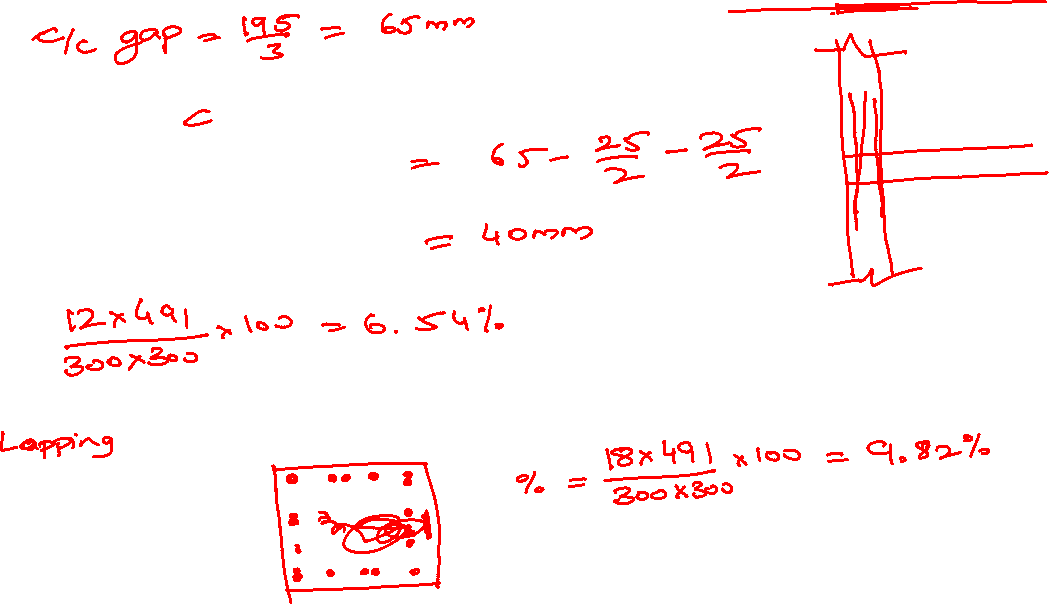 c/c gap = 195/3 = 65mm
c
= 65 - 25/2 - 25/2
= 40mm
12×491/300×300 × 100 = 6.54%
Lapping
% = 18×491/300×300 × 100 = 9.82%